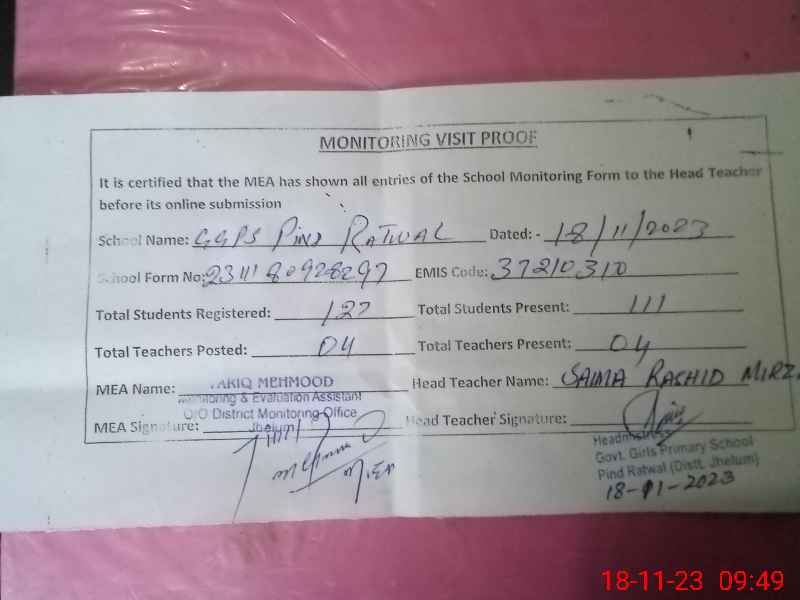 MONITORING VISIT PROOF
It is certified that the MEA has shown all entries of the School Monitoring Form to the Head Teacher
before its online submission
School Name: GGPS PIND RATWAL Dated: - 18/11/2023
School Form No: EMIS Code: 37210310
Total Students Registered: 127 Total Students Present: 111
Total Teachers Posted: 04 Total Teachers Present: 04
MEA Name: TARIQ MEHMOOD Head Teacher Name: SAIMA RASHID MIRZA
Monitoring & Evaluation Assistant
O/O District Monitoring Office
MEA Signature: Jhelum Head Teacher Signature:
Headmistress
Govt. Girls Primary School
Pind Ratwal (Distt. Jhelum)
18-11-2023
18-11-23 09:49